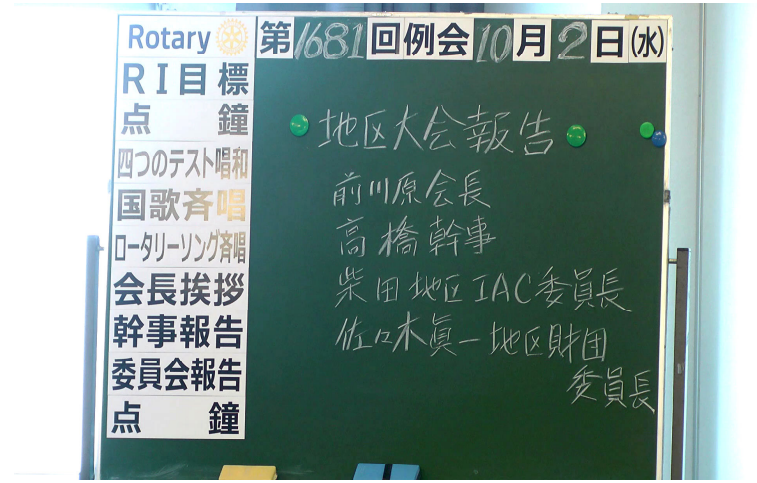 Rotary
第1681回例会10月2日(水)
RI目標
点 鐘
四つのテスト唱和
国歌斉唱
ロータリーソング斉唱
会長挨拶
幹事報告
委員会報告
点 鐘
地区大会報告
前川原会長
高橋幹事
柴田地区IAC委員長
佐々木眞一地区財団
委員長